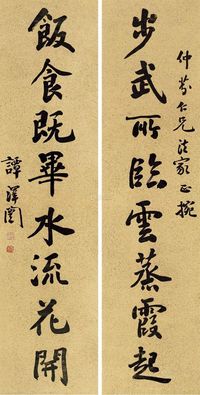 仲芬仁兄法家正捥
步武所臨雲蒸霞起
飯食既畢水流花開
譚澤闓